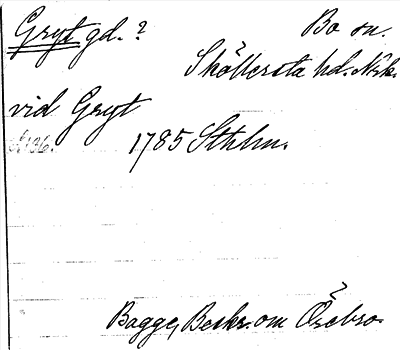 Gryt gd. ? Bo sn.
Sköllersta hd. Nrk.
vid Gryt
s. 136. 1785 Sthlm.
Bagge, Beskr. om Örebro.